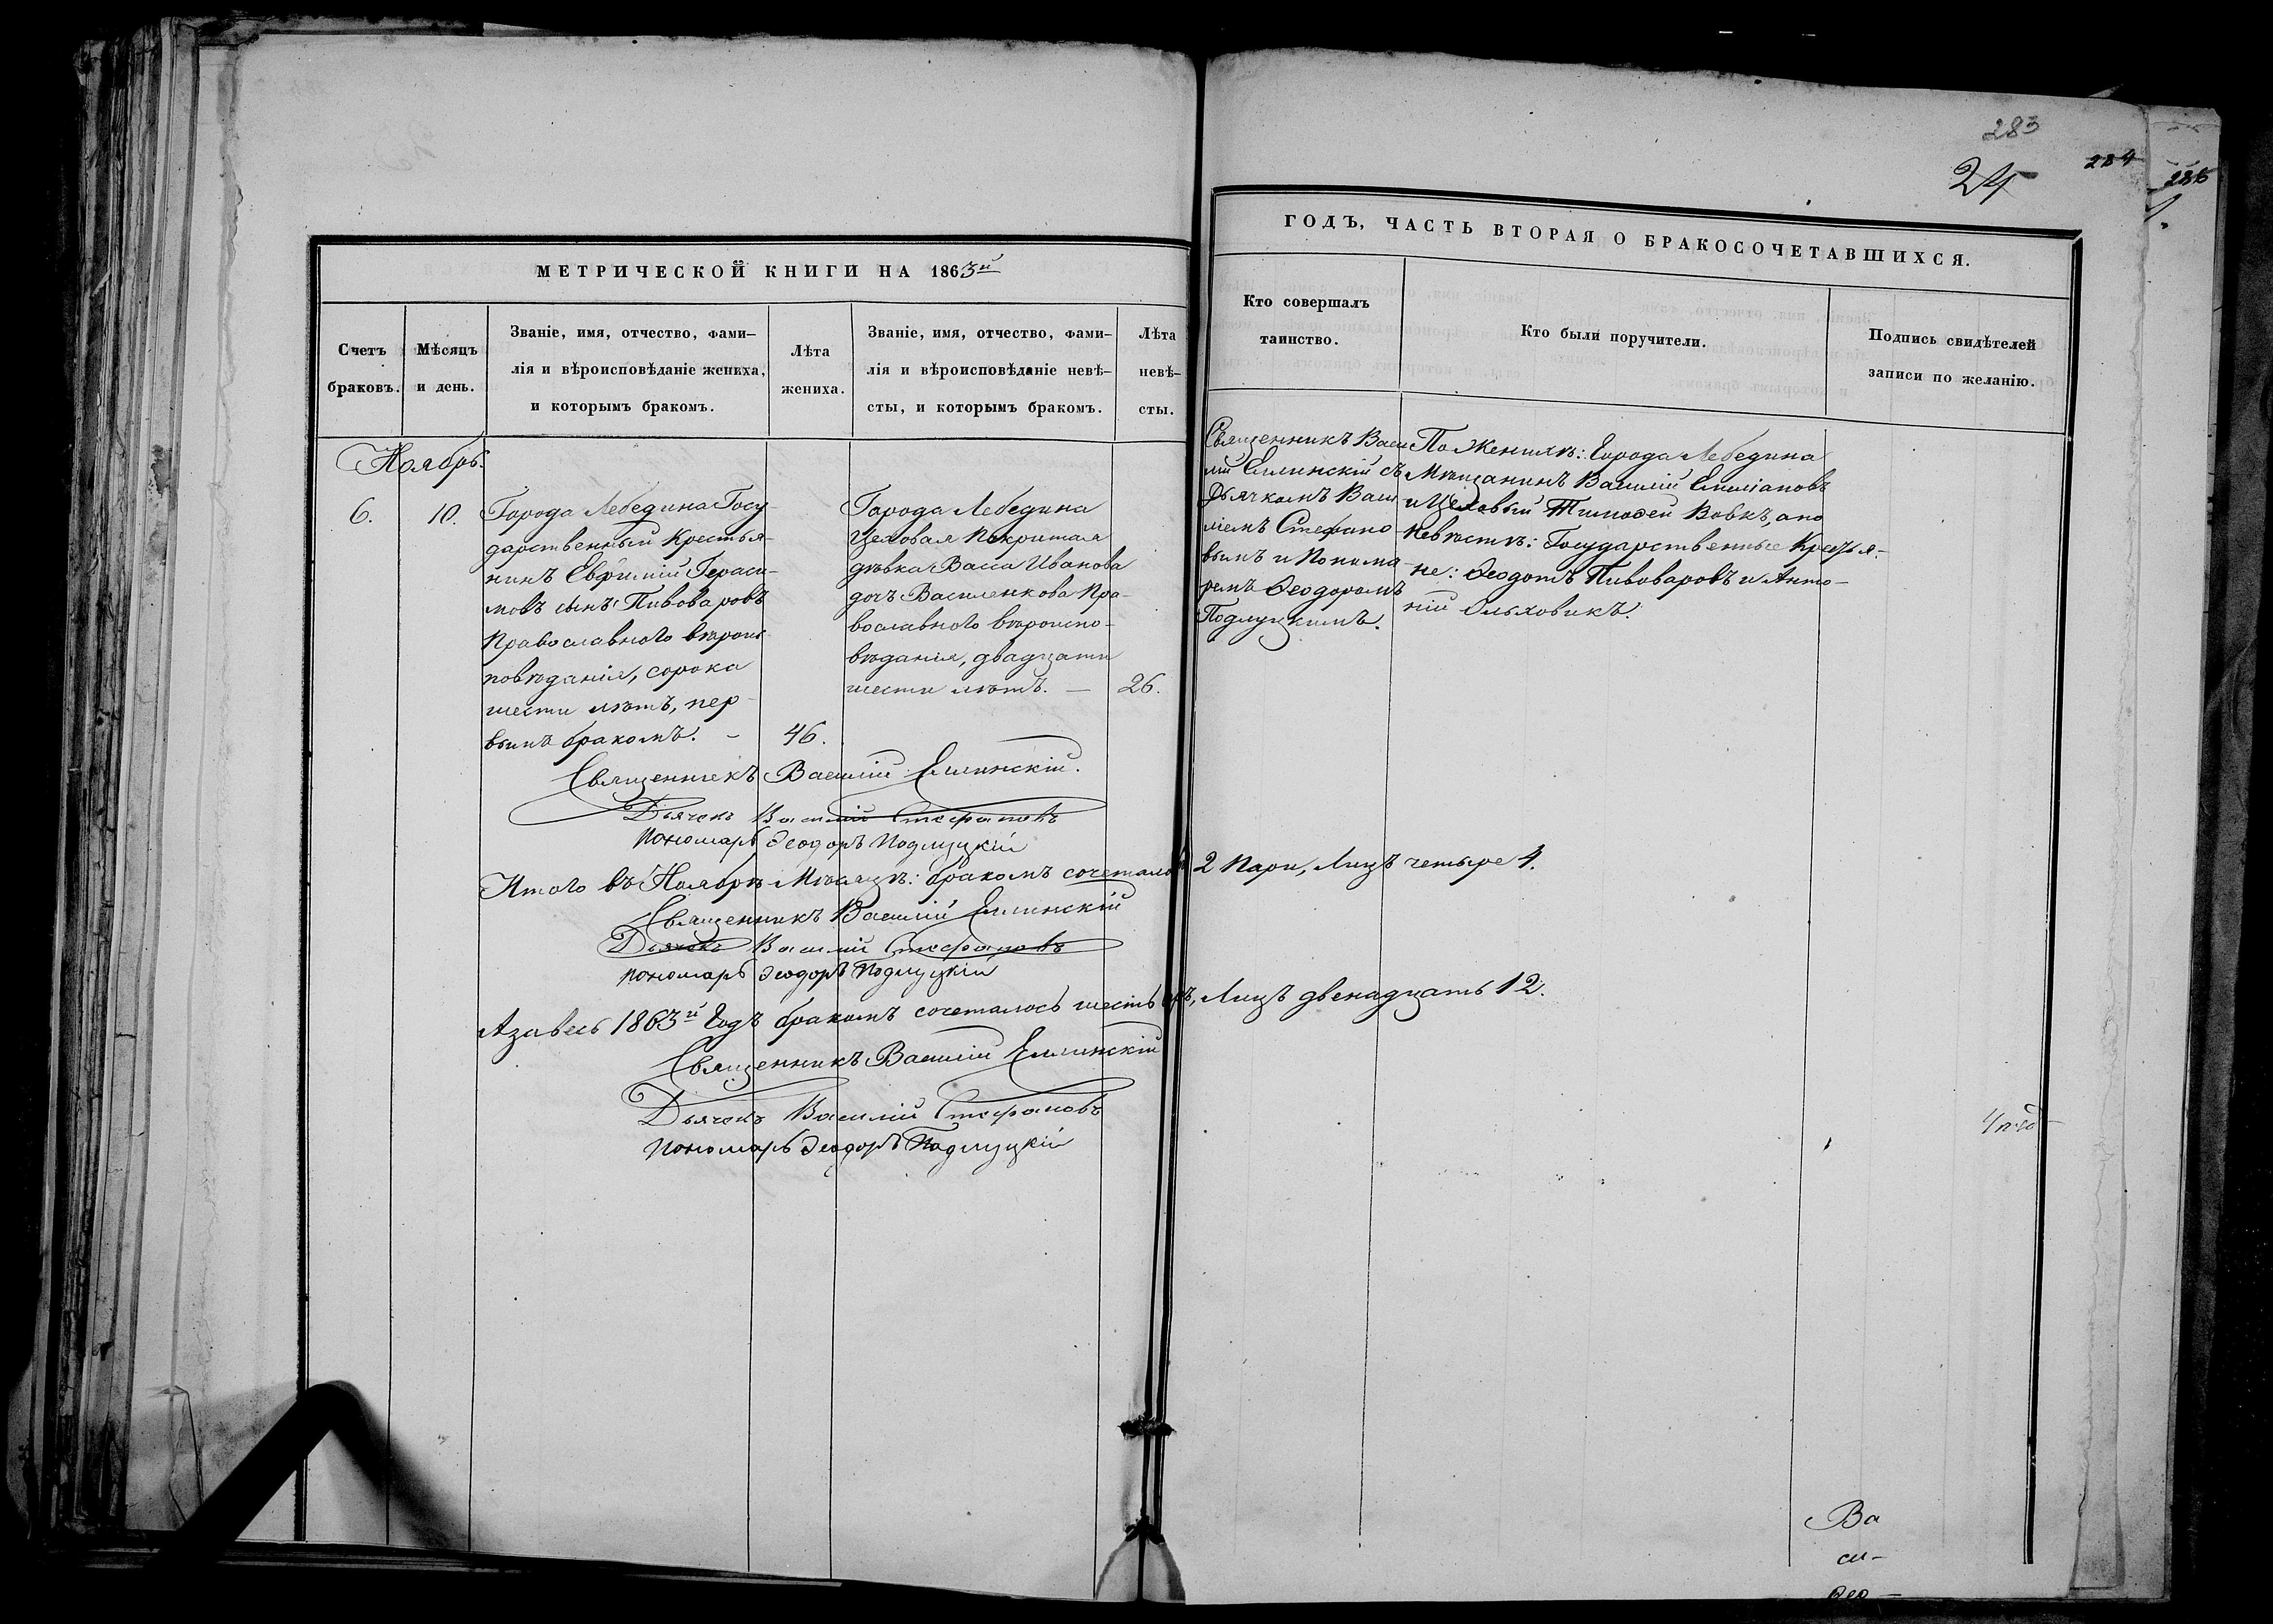 283
24
284
285
МЕТРИЧЕСКОЙ КНИГИ НА 1863й
ГОДЪ, ЧАСТЬ ВТОРАЯ О БРАКОСОЧЕТАВШИХСЯ.
Счетъ
браковъ.
Мѣсяцъ
и день.
Званіе, имя, отчество, фами-
лія и вѣроисповѣданіе жениха,
и которымъ бракомъ.
Лѣта
жениха.
Званіе, имя, отчество, фами-
лія и вѣроисповѣданіе невѣ-
сты, и которымъ бракомъ.
Лѣта
невѣ-
сты.
Кто совершалъ
таинство.
Кто были поручители.
Подпись свидѣтелей
записи по желанію.
Ноябрь.
6.
10.
Города Лебедина Госу-
дарственный Крестья-
нинъ Евфимій Гераси-
мовъ сынъ Пивоваровъ
Православнаго вѣроис-
повѣданія, сорока
шести лѣтъ, пер-
вымъ бракомъ. -
46.
Города Лебедина
Цеховая Покритая
дѣвка Васса Иванова
дочъ Василенкова Пра-
вославнаго вѣроиспо-
вѣданія, двадцати
шести лѣтъ. —
26.
Священникъ Васи
лій Еллинскій съ
Дьячкомъ Васи-
ліемъ Стефано-
вымъ и Понома-
ремъ Ѳеодоромъ
Подлуцкимъ.
По Женихѣ: Города Лебедина
Мѣщанинъ Василій Емиліановъ
и Цеховый Тимоѳей Вовкъ, а по
Невѣстѣ: Государственные Крестья-
не: Ѳеодотъ Пивоваровъ и Анто-
ній Ольховикъ.
Священникъ Василій Еллинскій.
Дьячекъ Василій Стефановъ
Пономарь Ѳеодоръ Подлуцкій
Итого въ Ноябрѣ Мѣсяцѣ: бракомъ сочеталось 2 Пари, Лицъ четыре 4.
Священникъ Василій Еллинскій
Дьячекъ Василій Стефановъ
Пономарь Ѳеодоръ Подлуцкій
А за весь 1863й Годъ бракомъ сочеталось шесть паръ, Лицъ двенадцать 12.
Священникъ Василій Еллинскій
Дьячекъ Василій Стефановъ
Пономарь Ѳеодоръ Подлуцкій
Ва
си-